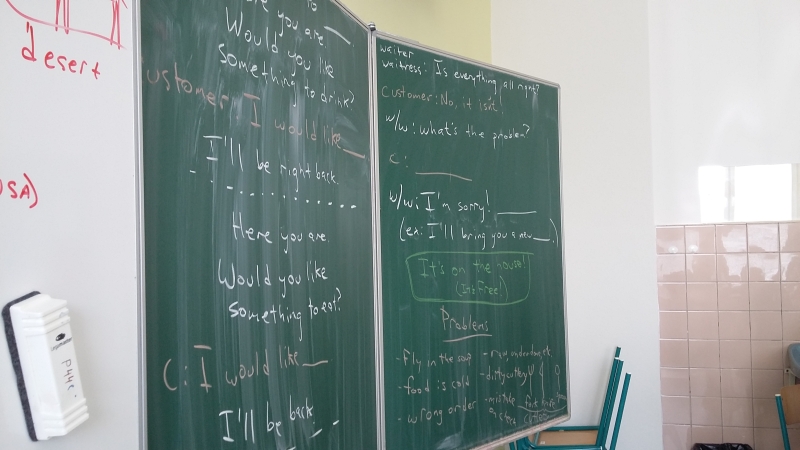 desert
USA)
to ___
Here you are.
Would you like
something to drink?
Customer I would like ___
I'll be right back.
Here you are.
Would you like
something to eat?
C: I would like ___
I'll be back
waiter
waitress: Is everything all right?
Customer: No, it isn't.
w/w: what's the problem?
C: ___
w/w: I'm sorry! ___
(ex: I'll bring you a new ___.)
It's on the house!
(It's Free!)
Problems
- Fly in the soup
- food is cold
- wrong order
- dirty cutlery
- mistake
fork knife